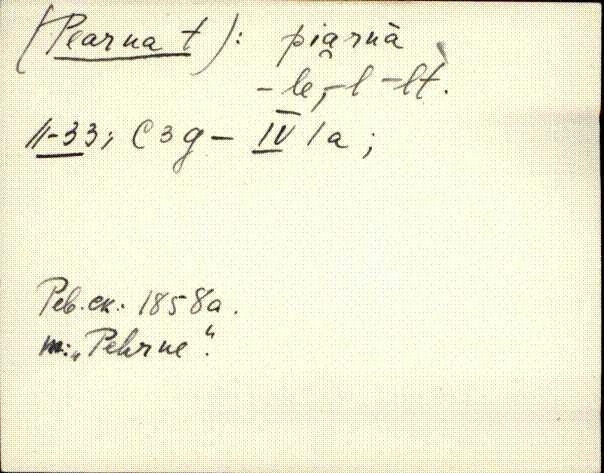 (Pearna t): piarnā
-le, -l -lt.
II-33; C3g - IV 1a;
Рев.ск. 1858a.
m: „Pehrne“.